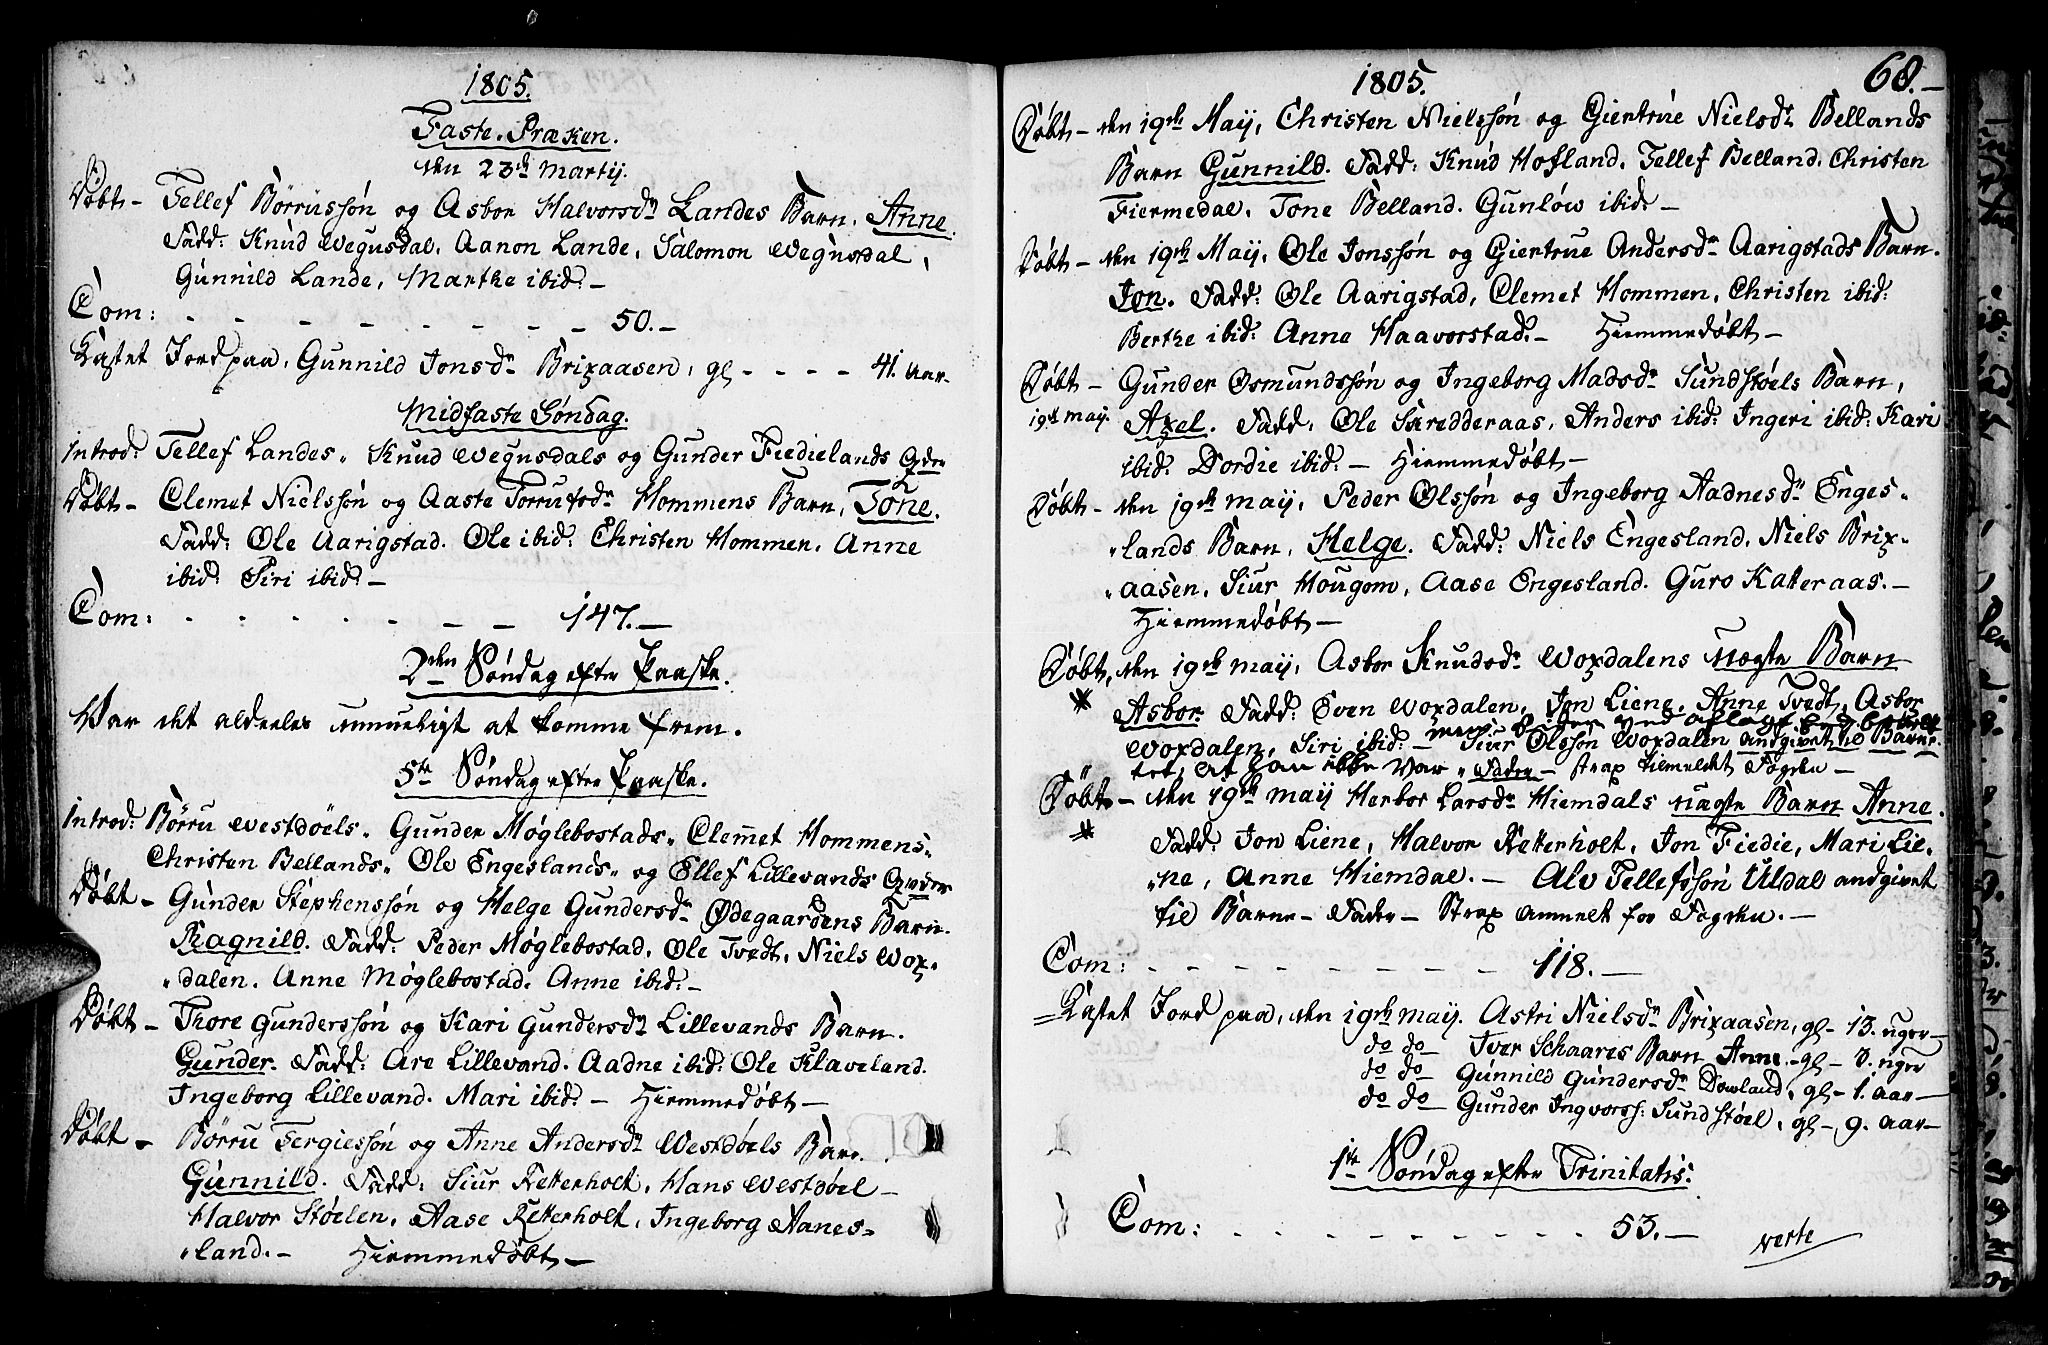 1805.
Faste-Præken.
den 23de Martij.
Døbt – Tellef Börrüssön og Asbor Halvorsdr Landes Barn, Anne.
Fadd: Knud Wegusdal, Aanon Lande, Salomon Wegusdal,
Gunnild Lande, Marthe ibid: –
Com: – – – – – – – 50. –
Kastet Jord paa, Gunnild Jonsdr Brixaasen, gl – – – – 41. aar –
Midfaste Søndag.
Introd: Tellef Landes, Knud Wegusdals og Gunder Fiedielands Qvdr
Døbt – Clemet Nielssön og Aaste Torrufsdr Hommens Barn, Tone.
Fadd: Ole Aarigstad. Ole ibid: Christen Hommen, Anne
ibid: Siri ibid: –
Com: – – – – – – 147. –
2den Søndag efter Paaske.
Var det aldeeles umueligt at komme frem.
5te Søndag efter Paaske.
Introd: Börru Westdöels, Gunder Möglebostads, Clemmet Hommens,
Christen Bellands, Ole Engeslands, og Ellef Lillevands Qvder
Døbt – Gunder Stephenssön og Helge Gundersdr Ødegaardens Barn.
Ragnild. Fadd: Peder Möglebostad, Ole Tvedt, Niels Wox-
dalen. Anne Möglebostad, Anne ibid: –
Døbt – Thore Gunderssön og Kari Gundersdr Lillevands Barn.
Gunder. Fadd: Are Lillevand. Aadne ibid: Ole Klaveland.
Ingeborg Lillevand. Mari ibid: – Hiemmedøbt –
Døbt – Börru Tergiessön og Anne Andersdr Westdöels Barn.
Gunnild. Fadd: Siur Retterholt, Hans Westdöel –
Halvor Stöelen, Aase Retterholt, Ingeborg Aanes-
land. – Hiemmedøbt –
1805.
68. –
Døbt – den 19de Maij, Christen Nielssön og Giertrue Nielsdr Bellands
Barn Gunnild. Fadd: Knud Hofland, Tellef Belland. Christen
Fiermedal, Tone Belland. Gunlöw ibid: –
Døbt – den 19de Maij, Ole Jonssön og Giertrue Andersdr Aarigstads Barn.
Jon. Fadd: Ole Aarigstad, Clemet Hommen, Christen ibid:
Berthe ibid: Anne Haavorstad. – Hiemmedøbt –
Døbt – Gunder Osmundssön og Ingeborg Madsdr Sundstöels Barn,
19de maij. Axel. Fadd, Ole Saredderaas, Anders ibid: Ingeri ibid: Kari
ibid: Dordie ibid: – Hiemmedøbt –
Døbt – den 19de maij, Peder Olssön og Ingeborg Aadnesdr Enges-
lands Barn, Helge. Fadd: Niels Engesland, Niels Brix-
aasen, Siur Hougom, Aase Engesland. Guro Katteraas. –
Hiemmedøbt –
Døbt, den 19de maij, Asbor Knudsdr Woxdalens Uægte Barn
Asbor. Fadd: Even Woxdalen, Jon Liene, Anne Tvedt, Asbor
men siden ved aflagt Eed
Woxdalen, Siri ibid: – Siur Olssön Woxdalen andgivet til Barne-
tet, at han ikke var Fader – strax tilmeldet Fogden –
Døbt – den 19de maij Herbor Larsdr Hiemdals uægte Barn Anne.
Fadd: Jon Liene, Halvor Retterholt, Jon Fiedie, Mari Lie-
ne, Anne Hiemdal. – Alv Tellefssön Uldal andgivet
til Barne – Fader – Strax anmelt for Fogden. –
Com: – – – – – – – – – 118. –
Kastet Jord paa, den 19de maij. Astri Nielsdr Brixaasen, gl – 13. uger –
do do – Iver Schaares Barn Anne – gl – 8. uger
do do – Gunnild Gundersdr Dowland, gl – 1. aar –
do do – Gunder Ingvorss: Sundstöel, gl – 9. aar –
1te Søndag efter Trinitatis.
Com: – – – – – – – – – 53. –
verte